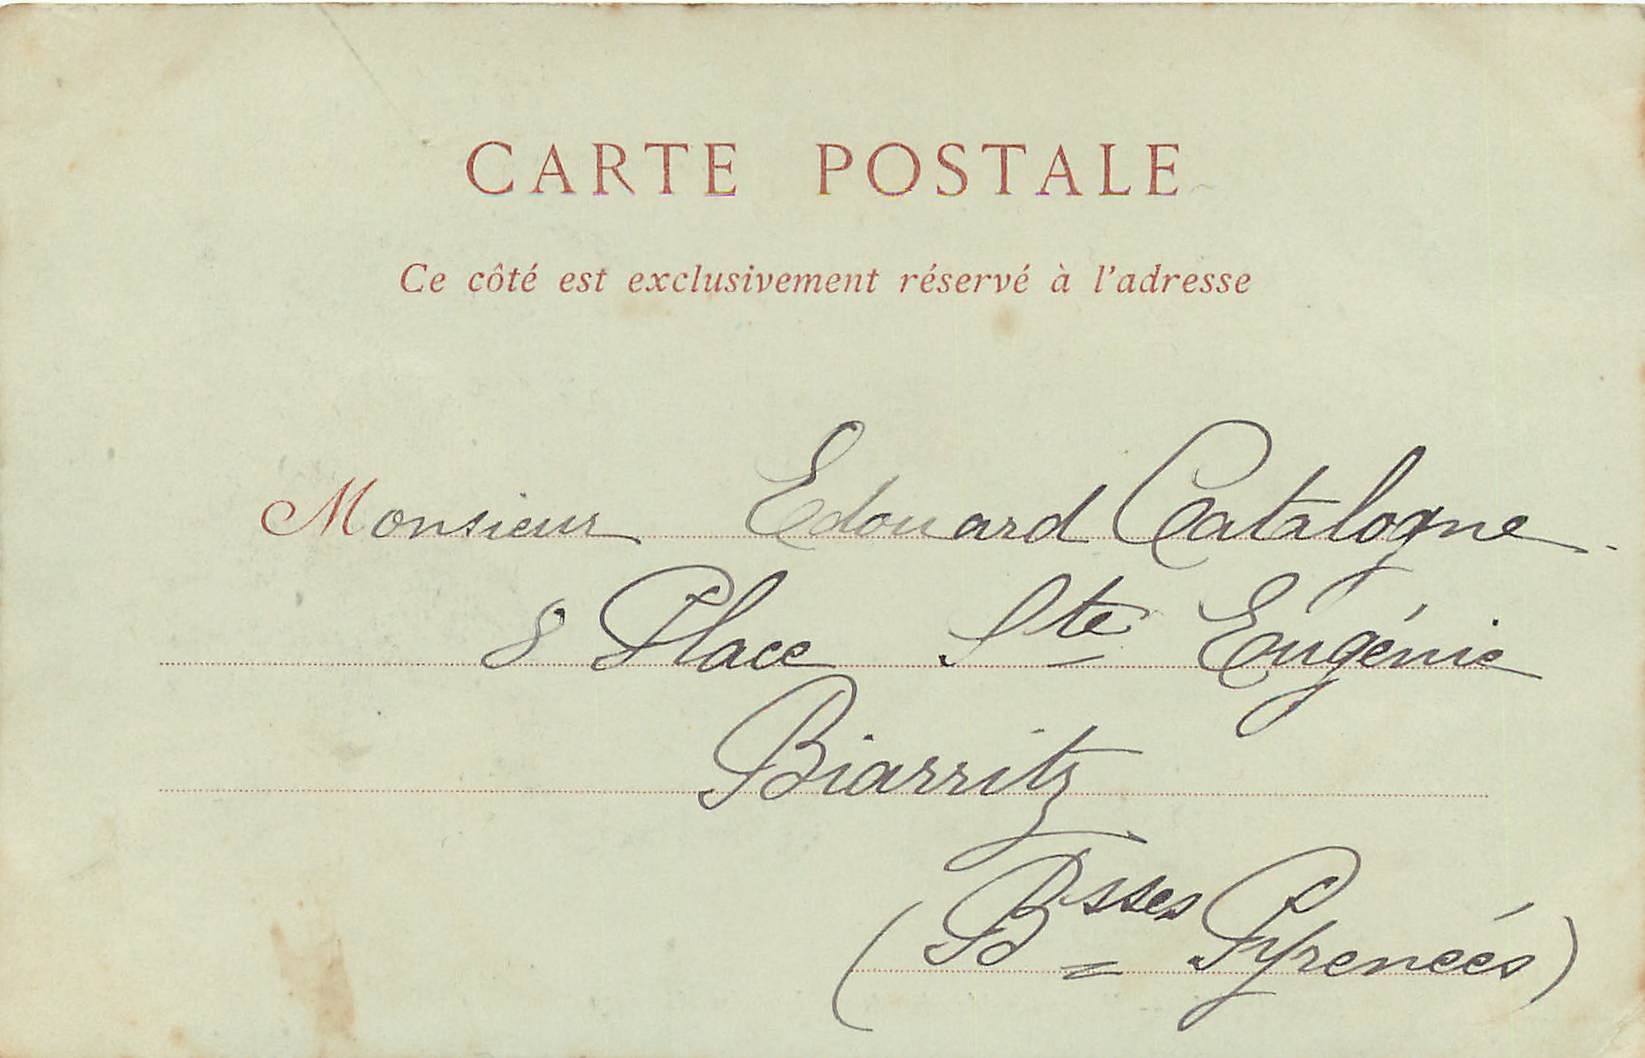 CARTE POSTALE
Ce côté est exclusivement réservé à l'adresse
Monsieur Edouard Catalogne.
8 Place Ste Eugénie
Biarritz
(Bsses Pyreneés)